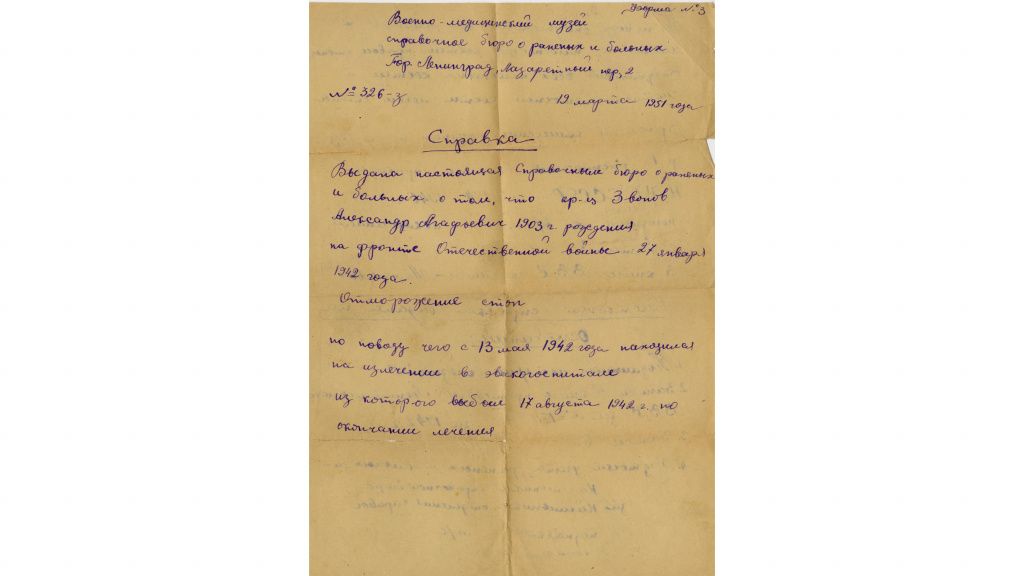 Форма №3
Военно-медицинский музей
справочное бюро о раненых и больных
Гор. Ленинград, Лазаретный пер, 2
№ 326-з 19 марта 1951 года
Справка
Выдана настоящая Справочным бюро о раненых
и больных о том, что кр-ец Звонов
Александр Агафьевич 1903 г рождения
на фронте Отечественной войны 27 января
1942 года.
Отморожение стоп
по поводу чего с 13 мая 1942 года находился
на излечении в эвакогоспитале
из которого выбыл 17 августа 1942 г. по
окончании лечения